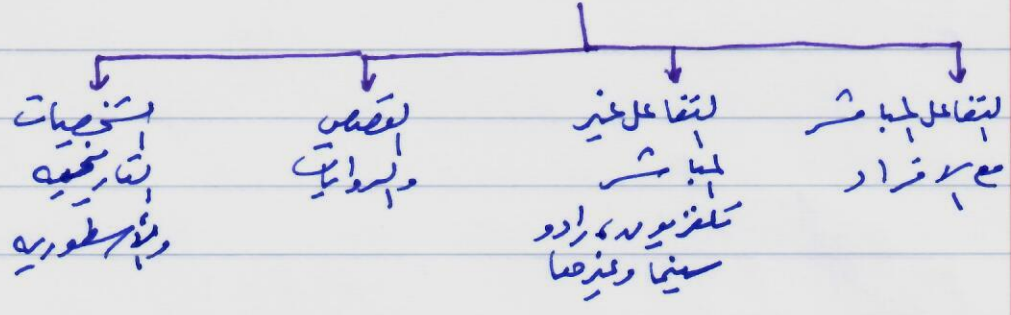 التفاعل المباشر
مع الافراد
التفاعل غير
المباشر
تلفزيون، رادو
سينما وغيرها
القصص
والروايات
الشخصيات
التاريخيه
والأسطوريه